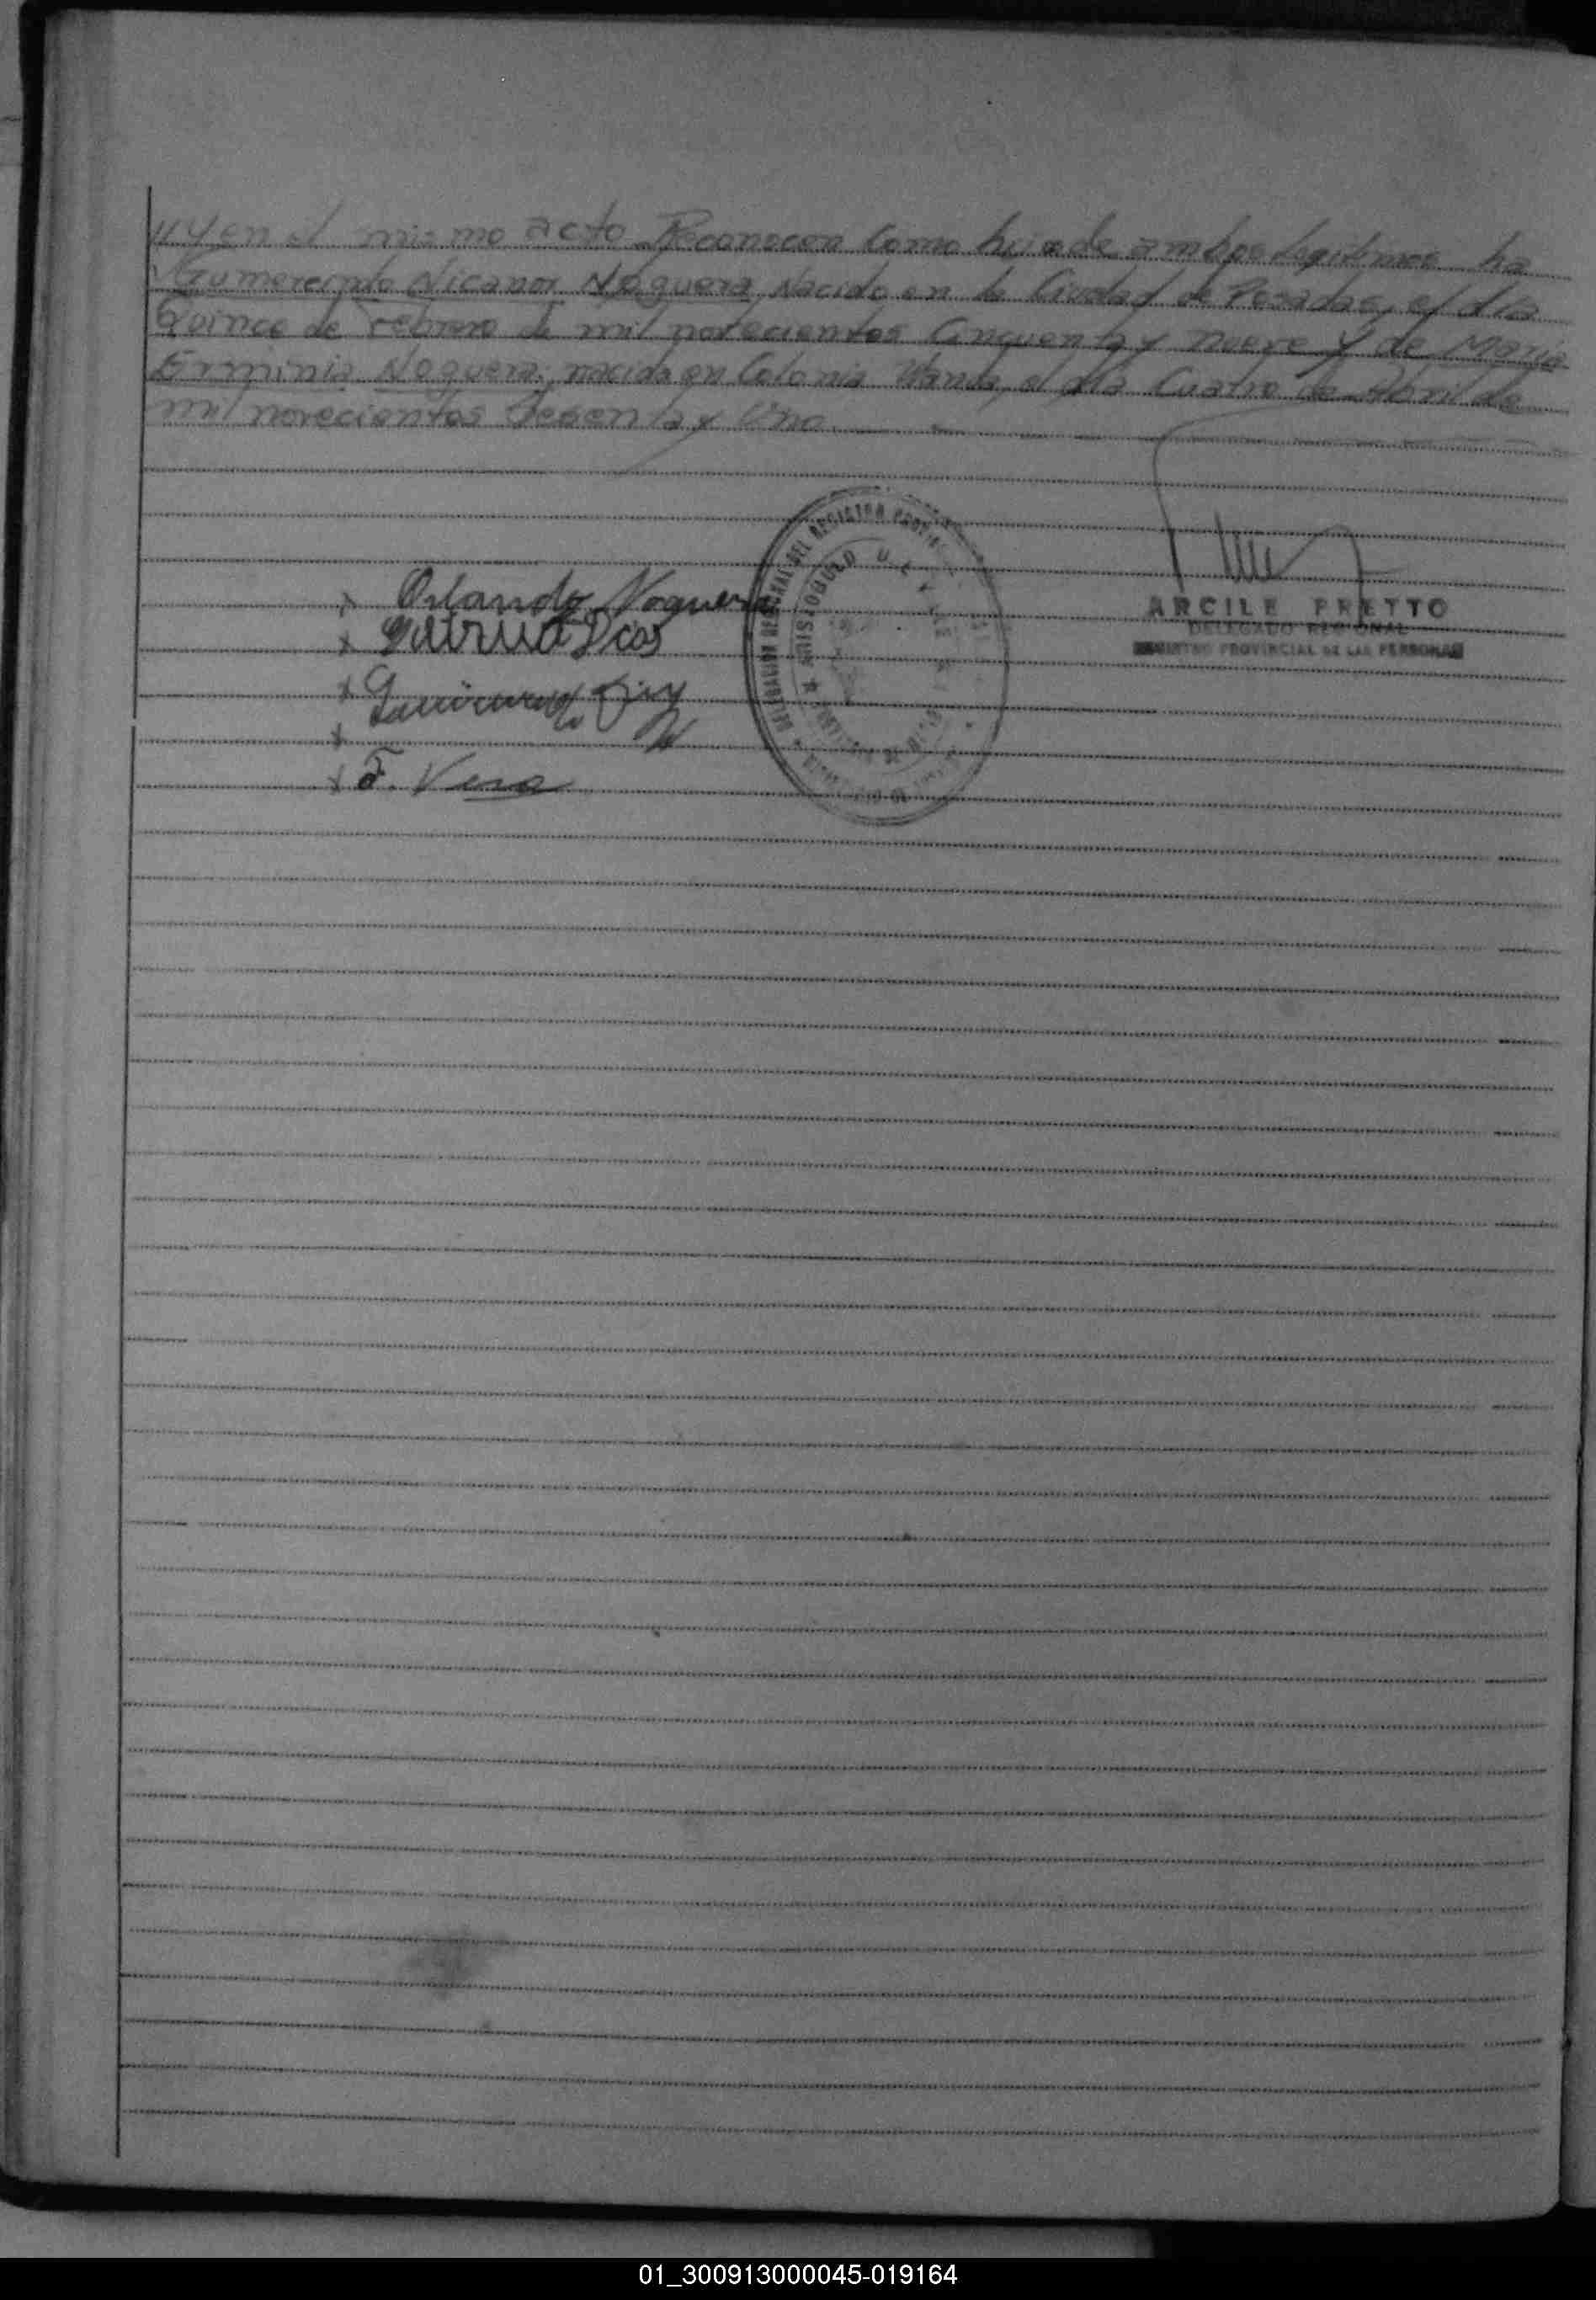 y en el mismo acto Reconocen como hijos de ambos legitimos ha
Gumerecindo Nicanor Noguera, Nacido en la Ciudad de Posadas, el día
Quince de Febrero de mil novecientos Cincuenta y nueve y de María
Erminia Noguera, nacida en Colonia Wanda, el día Cuatro de Abril de
mil novecientos Sesenta y Uno.
x Orlando Noguera
x Dias
x
x
x F. Vera
DELEGACION REGIONAL DEL REGISTRO
ARISTOBULO DEL
ARCILE PRETTO
DELEGADO REGIONAL
REGISTRO PROVINCIAL DE LAS PERSONAS
01_300913000045-019164